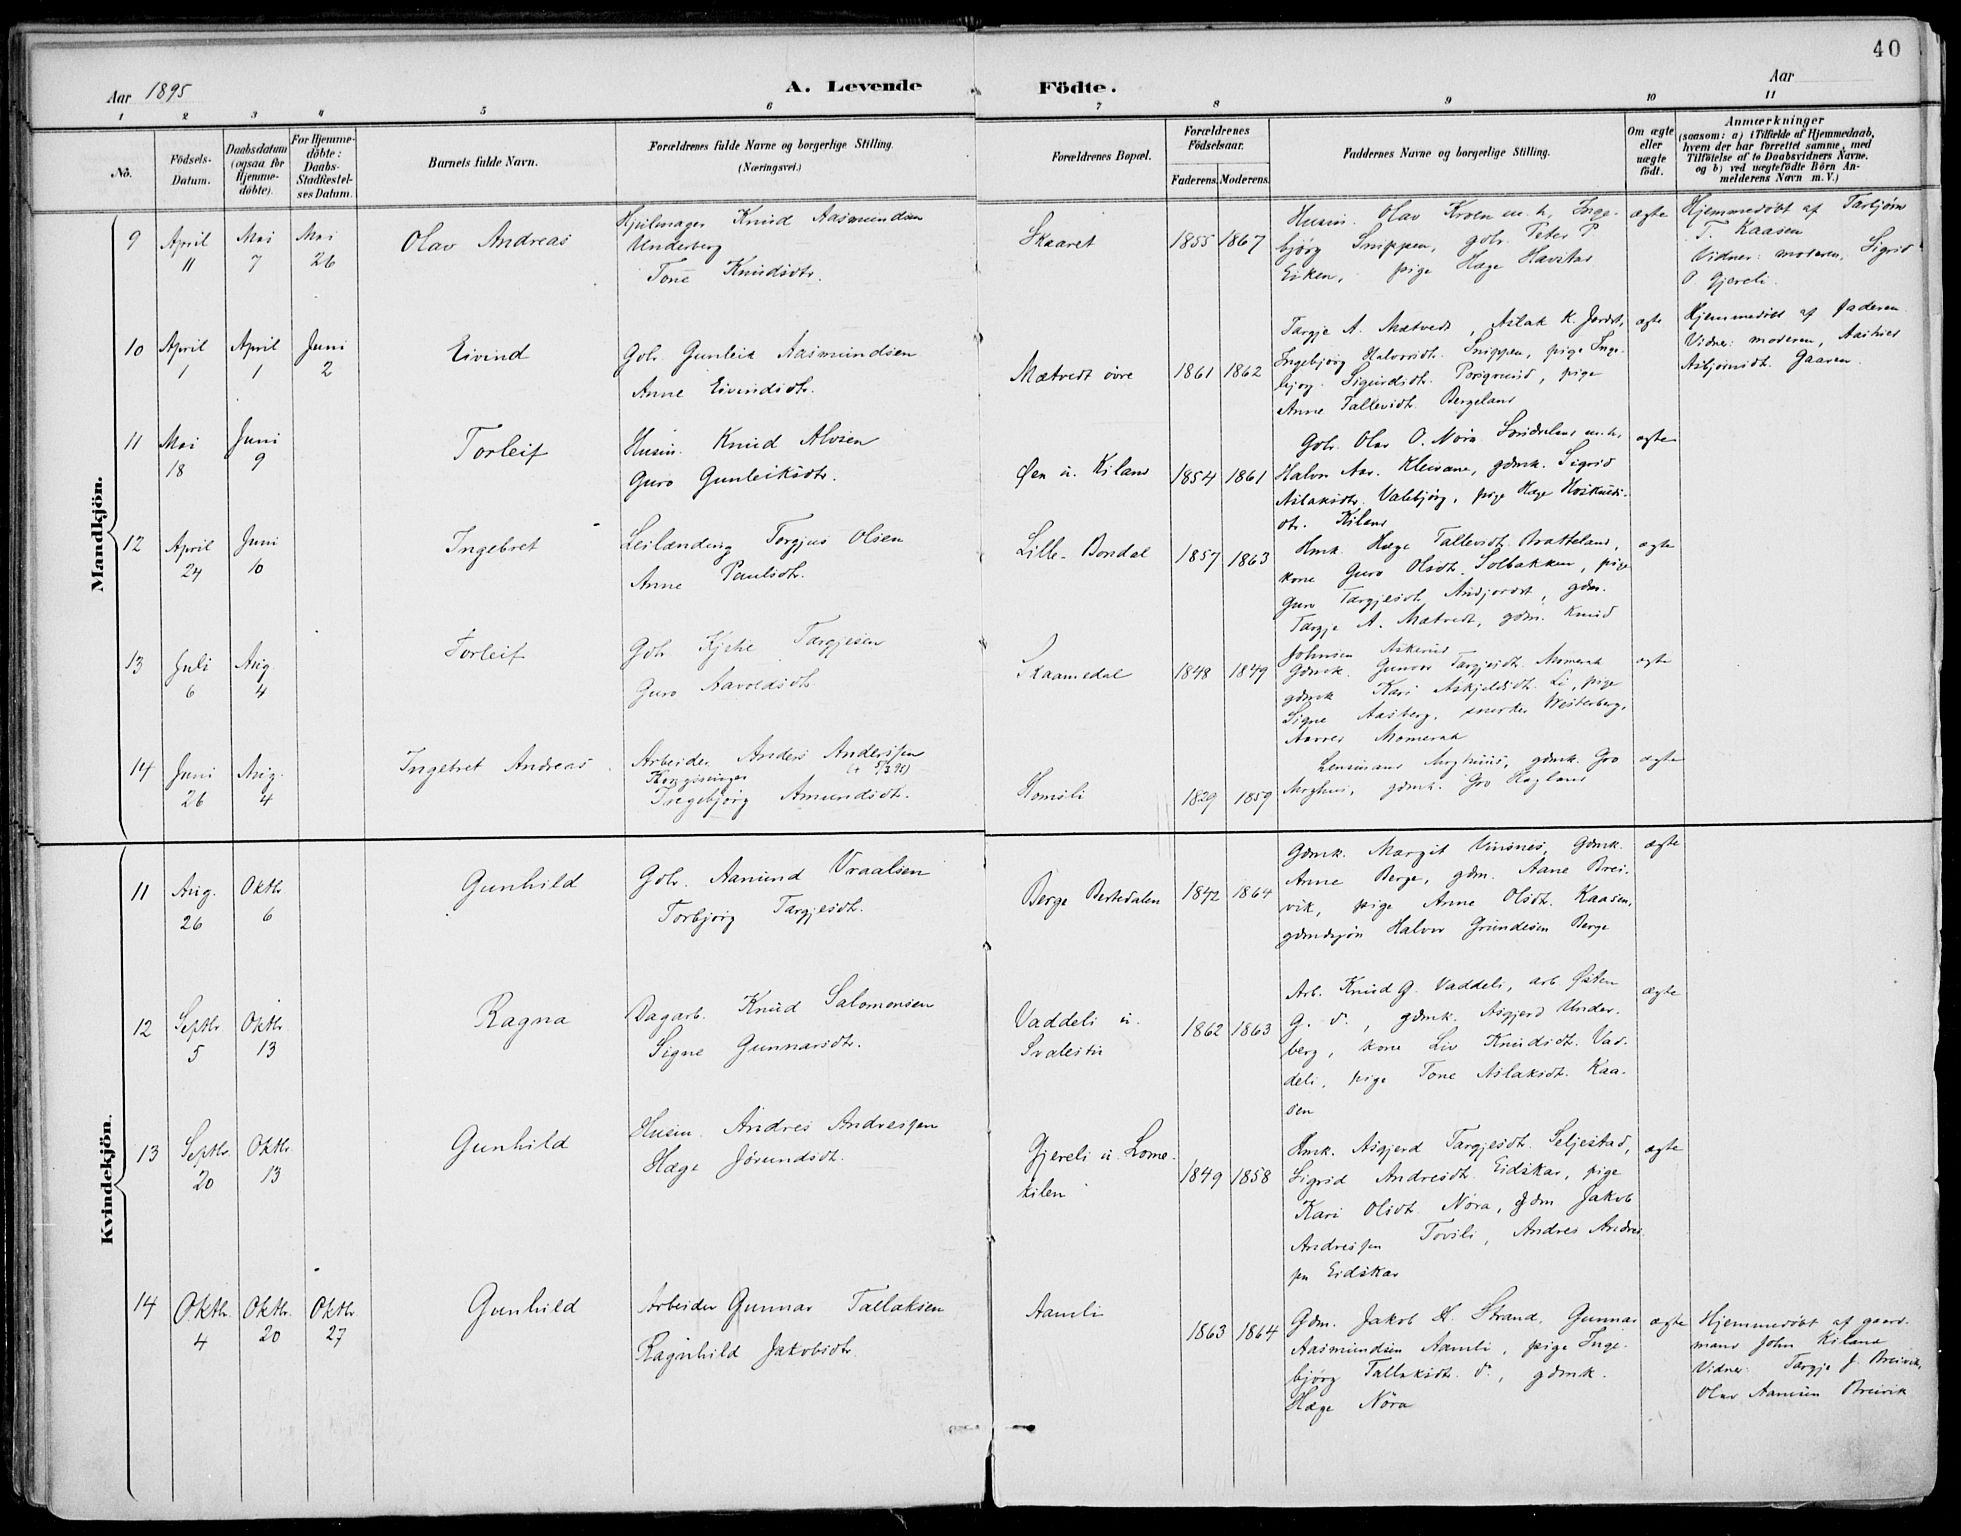 40
Aar 1895
A. Levende
Födte.
Aar
1 2 3 4 5 6 7 8 9 10 11
No.
Födsels-
Datum.
Daabsdatum
(ogsaa for
Hjemme-
döbte).
For Hjemme-
döbte:
Daabs-
Stadfæstel-
ses Datum.
Barnets fulde Navn.
Forældrenes fulde Navne og borgerlige Stilling.
(Næringsvei.)
Forældrenes Bopæl.
Forældrenes
Födselsaar.
Faderens. Moderens.
Faddernes Navne og borgerlige Stilling.
Om ægte
eller
uægte
födt.
Anmærkninger
(saasom: a) i Tilfælde af Hjemmedaab,
hvem der har forrettet samme, med
Tilföielse af to Daabsvidners Navne.
og b) ved uægtefödte Börn An-
melderens Navn m. V.)
Mandkjön.
9
April
11
Mai
7
Mai
26
Olav Andreas
Hjulmager Knud Aasmundsen
Underberg
Tone Knudsdtr.
Skaaret
1855 1867
Husm. Olav Kroen m. h, Inge-
bjørg Snippen, gbr. Peter P.
Eiken, pige Hæge Havstad
ægte
Hjemmedøbt af Tarbjørn
T. Kaasen
Vidner: moderen, Sigrid
O. Gjereli.
10
April
1
April
1
Juni
2
Eivind
Gbr. Gunleik Aasmundsen
Anne Eivindsdtr.
Mætvedt øvre
1861 1862
Targje A. Mætvedt, Aslak K. Jordet,
Ingebjørg Halvorsdtr. Snippen, pige Inge-
bjørg Sigurdsdtr. Porsgrund, pige
Anne Tallevsdtr. Bergeland
ægte
Hjemmedøbt af faderen.
Vidner: moderen, Aasne
Asbjørnsdt. Gaaren.
11
Mai
18
Juni
9
Torleif
Husm. Knud Alvsen
Guro Gunleiksdtr.
Øen u. Kiland
1854 1861
Gbr. Olav O. Nøra m. h,
Halvor Aav. Kleivane, gdmk. Sigrid
Aslaksdtr. Valebjørg, pige Hæge Hoskulds-
dtr. Kiland
ægte
12
April
24
Juni
10
Ingebret
Leilænding Torgjus Olsen
Anne Paulsdtr.
Lille-Bondal
1857 1863
Hmk. Hæge Tallevsdtr. Bratteland,
kone Guro Olsdt. Solbakken, pige
Guro Targjesdt. Andjordet, gdm.
Targje A. Mætvedt, gdm. Knud
Johnsen Askerud
ægte
13
Juli
6
Aug
4
Torleif
Gbr. Kjetil Targjesen
Guro Aavoldsdtr
Skaamedal
1848 1849
Gdmk. Gunvor Targjesdt. Momrak
gdmk Kari Askjeldsdt. Li, pige
Signe Aasberg, snekker Westerberg,
Aavres Momrak
ægte
14
Juni
26
Aug.
4
Ingebret Andreas
Arbeider Anders Anderssen
(† 5/3 95)
Kongsvinger
Ingebjørg Amundsdt.
Homsli
1829 1859
Lensmand Moghus, gdmk. Gro
Moghus, gdmk. Gro Hagland
ægte
Kvindekjön.
11
Aug.
26
Oktbr
6
Gunhild
Gbr. Aanund Vraalsen
Torbjørg Targjesdt.
Berge Bertedalen
1842 1864
Gdmk. Margit Vinsnes, Gdmk.
Anne Berge, gdm. Aane Brei-
vik, pige Anne Olsdt. Kaasen,
gdmdssøn Halvor Grundesen Berge
ægte
12
Septbr
5
Oktbr
13
Ragna
Dagarb. Knud Salomonsen
Signe Gunnarsdtr.
Vaddeli u.
Svalestu
1862 1863
Arb. Knud G. Vaddeli, arb Østen
G. do., gdmk. Asgjerd Under-
berg, kone Liv Knudsdt. Vad-
deli, pige Tone Aslaksdt. Kaa-
sen
ægte
13
Septbr.
20
Oktbr
13
Gunhild
Husm. Andres Andressen
Hæge Jørundsdt.
Gjereli u. Lome-
kilen
1849 1858
Hmk. Asgjerd Targjesdt. Seljestad,
Sigrid Andresdt. Eidskar, pige
Kari Olsdt. Nøra, gdm Jakob
Andressen Tovsli, Andres Andres-
sen Eidskar
ægte
14
Oktbr.
4
Oktbr.
20
Oktbr
27
Gunhild
Arbeider Gunnar Tallaksen
Ragnhild Jakobsdtr.
Aamli
1863 1864
Gdm. Jakob H. Strand, Gunnar
Aasmundsen Aamli, pige Inge-
bjørg Tallaksdt. do., gdmk.
Hæge Nöra
ægte
Hjemmedøbt af gaard-
mand John Kiland
Vidner: Targje J. Breivik,
Olav Aanesen Breivik